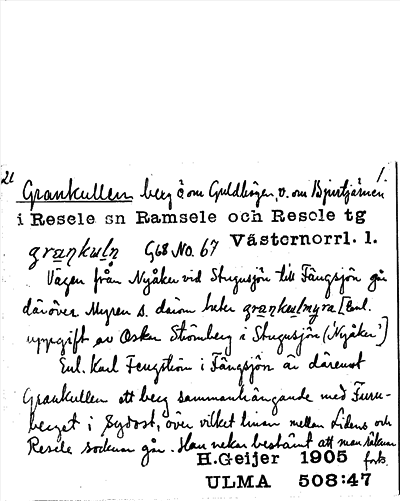 21 1.
Grankullen berg ö om Guldhögen, v. om Bjurtjärnen
i Resele sn Ramsele och Resele tg
Västernorrl. l.
grankuln GLB No. 67
Vägen från Nyåker vid Stugusjön till Fängsjön går
däröver Myren s. därom heter grankulmyra [Enl.
uppgift av Oskar Strömberg i Stugusjön ('Nyåker')
Enl. Karl Fengström i Fängsjön är däremot
Grankullen ett berg sammanhängande med Furu-
berget i Sydost, över vilket linan mellan Lidens och
Resele socknar går. Han nekar bestämt att man räknar
forts.
H.Geijer 1905
ULMA 508:47